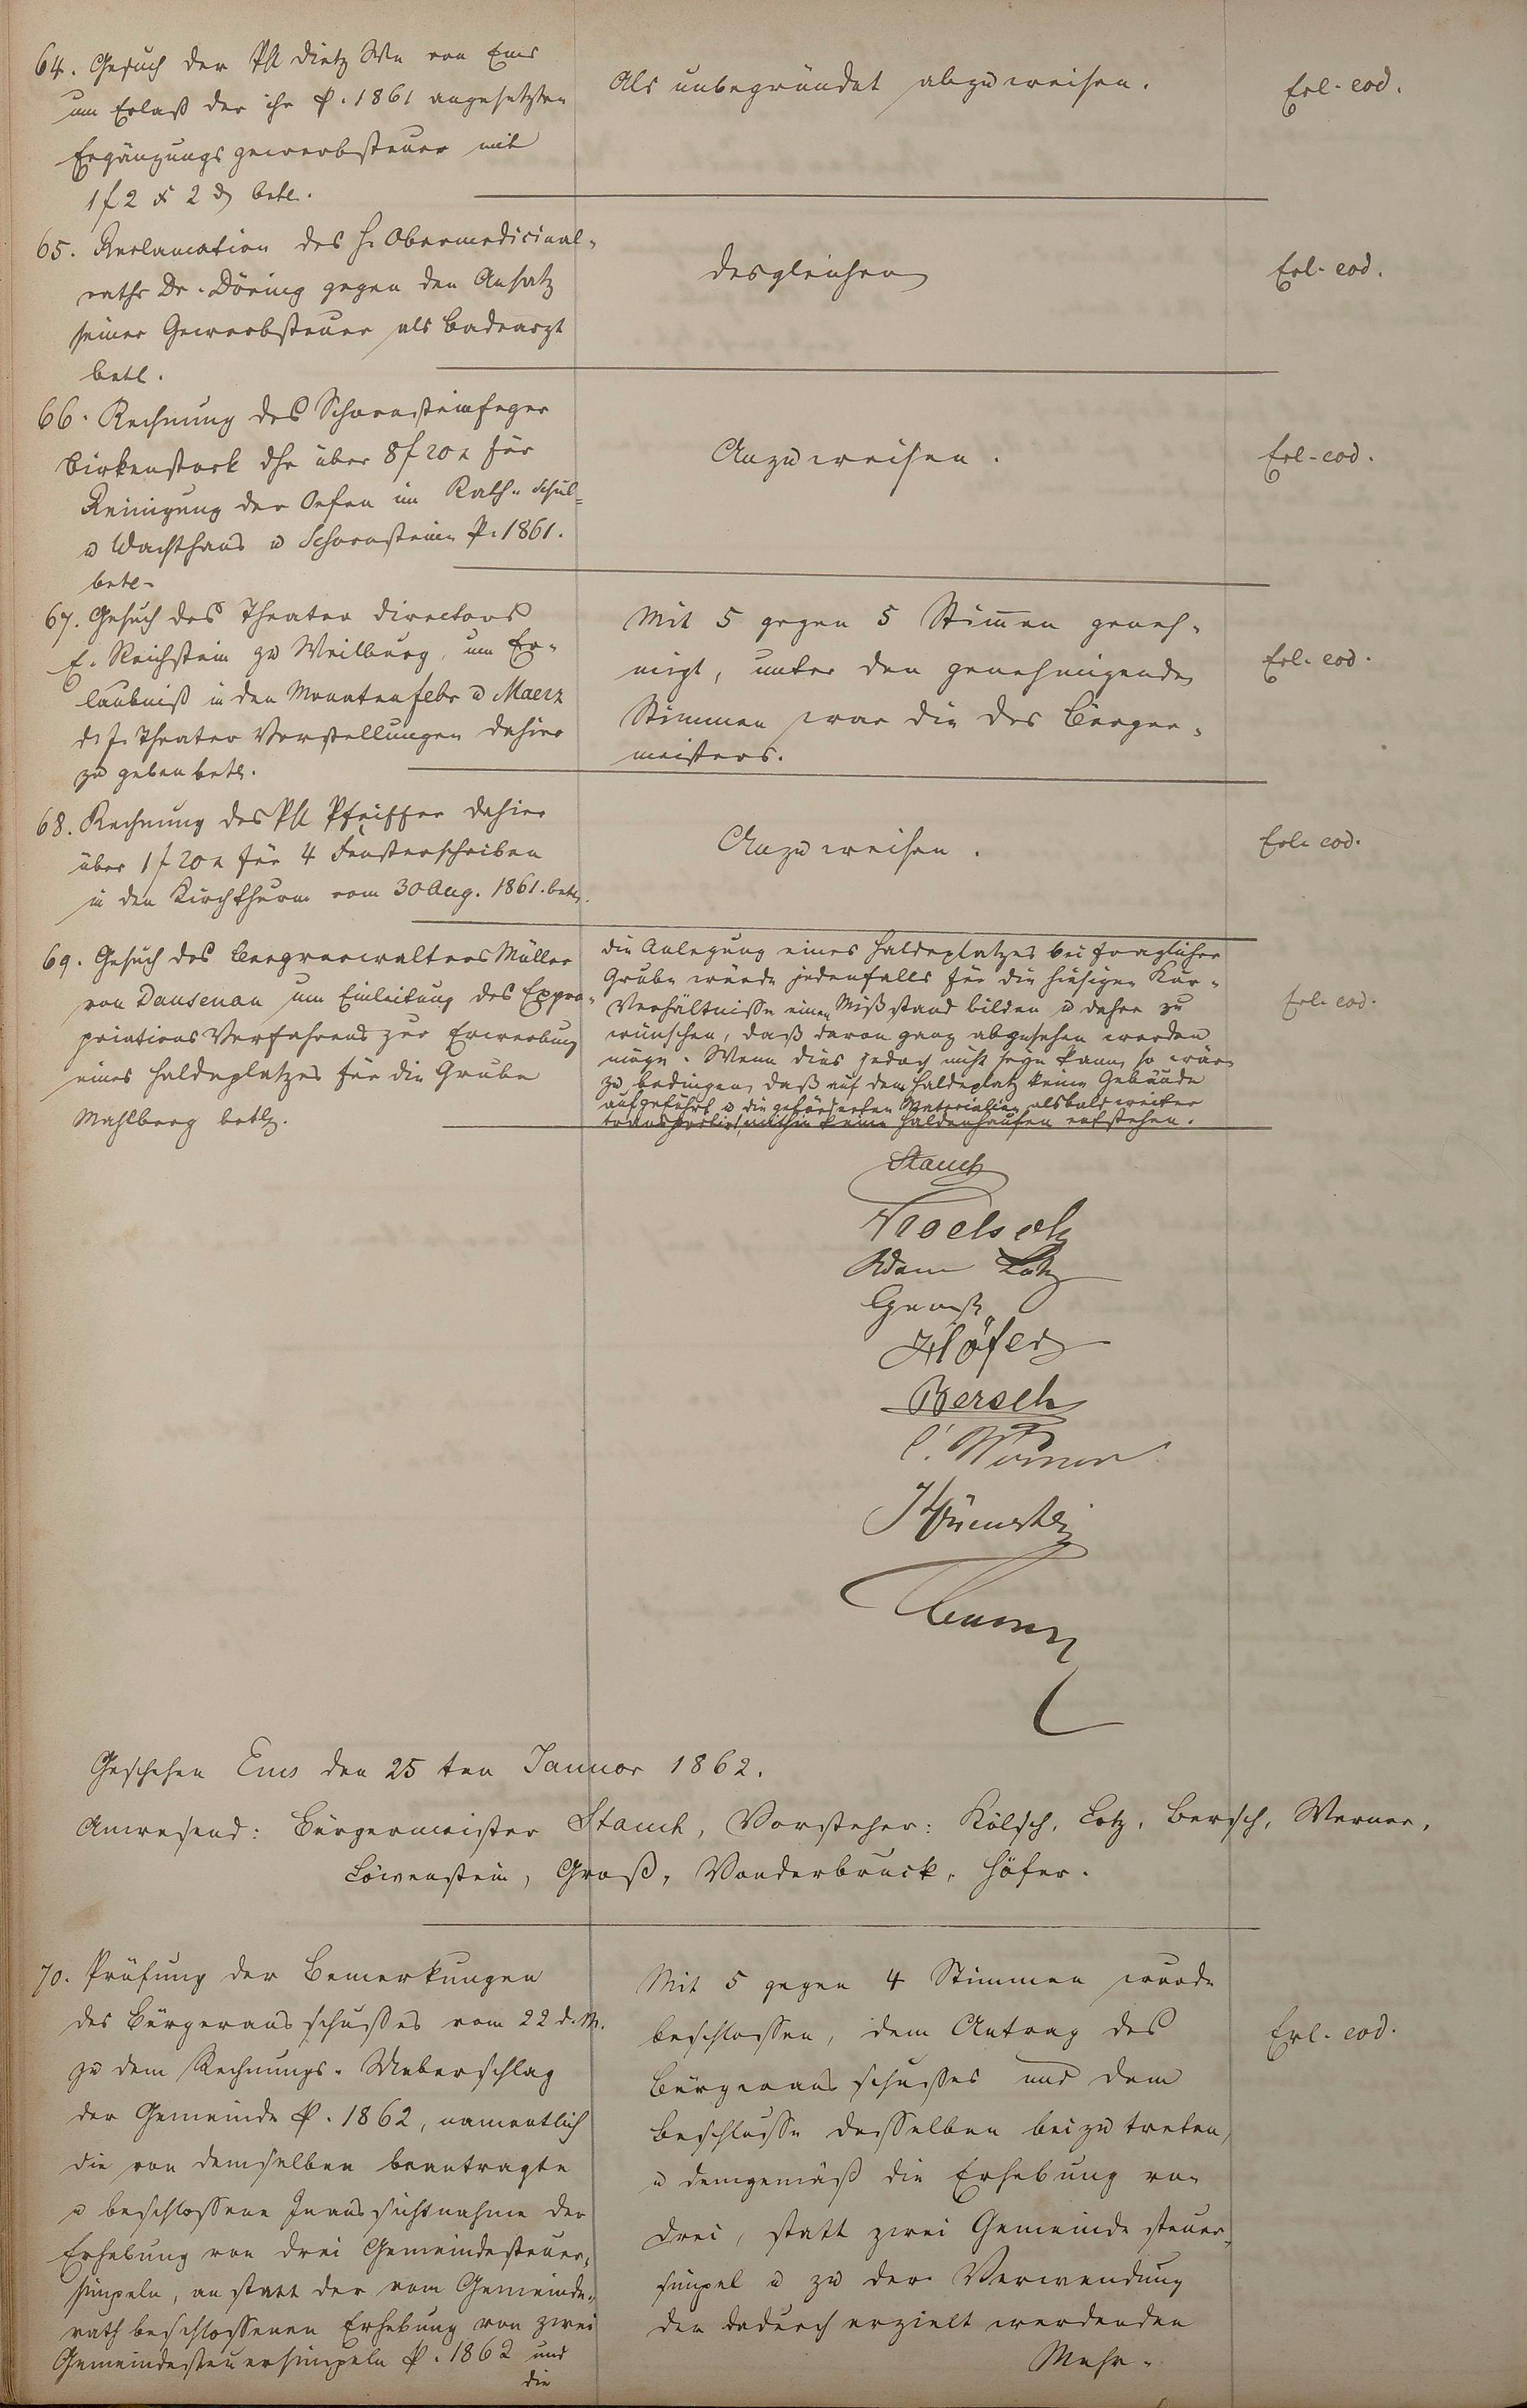 64. Gesuch der Phl Dietz Ww von Ems
um Erlaß der ihr p. 1861 angesetzten
Ergänzungsgewerbsteuer mit
1 f 2 x 2 d betr.
Als unbegründet abzuweisen.
Erl. eod.
65. Reclamation des H. Obermedicinal-
raths Dr. Döring gegen den Ansatz
seiner Gewerbsteuer als Badearzt
betr.
desgleichen
Erl. eod.
66. Rechnung des Schornsteinfeger
Birkenstock dhr über 8 f 20 x für
Reinigung der Oefen im Rath- Schul-
u Wachthaus u Schornsteine p. 1861.
betr.
Anzuweisen.
Erl. eod.
67. Gesuch des Theater Directors
E. Reichstein zu Weilburg, um Er-
laubniß in den Monaten Febr u Maerz
d. J. Theater Vorstellungen dahier
zu geben betr.
Mit 5 gegen 5 Stimmen geneh-
migt, unter den genehmigenden
Stimmen war die des Bürger-
meisters.
Erl. eod.
68. Rechnung des Phl Pfeiffer dahier
über 1 f 20 x für 4 Fensterscheiben
in den Kirchthurm vom 30 Aug. 1861. betr.
Anzuweisen.
Erl. eod.
69. Gesuch des Bergverwalters Müller
von Dausenau um Einleitung des Expro-
priations Verfahrens zur Erwerbung
eines Haldeplatzes für die Grube
Mahlberg betr.
die Anlegung eines Haldeplatzes bei fraglicher
Grube würde jedenfalls für die hiesigen Kur-
Verhältnisse einen Mißstand bilden u daher zu
wünschen, daß davon ganz abgesehen werden
möge. Wenn dies jedoch nicht seyn kann, so wäre
zu bedingen, daß auf dem Haldeplatz keine Gebäude
aufgeführt u die geförderten Materialien alsbald weiter
transportirt, mithin keine Haldenhaufen entstehen.
Erl. eod.
Stauch
Koelsch
Adam Lotz
Groß
Höfer
Bersch
C. Werner
Geschehen Ems den 25 ten Januar 1862.
Anwesend: Bürgermeister Stauch, Vorsteher: Kölsch, Lotz, Bersch, Werner,
Löwenstein, Groß, Vonderbruck, Höfer.
70. Prüfung der Bemerkungen
des Bürgerausschußes vom 22 d. M.
zu dem Rechnungs-Ueberschlag
der Gemeinde p. 1862, namentlich
die von demselben beantragte
u beschlossene Inaussichtnahme der
Erhebung von drei Gemeindesteuer-
simpeln, anstatt der vom Gemeinde-
rath beschlossenen Erhebung von zwei
Gemeindesteuersimpeln p. 1862 und
die
Mit 5 gegen 4 Stimmen wurde
beschlossen, dem Antrag des
Bürgerausschußes und dem
Beschlusse desselben beizutreten,
u demgemäß die Erhebung von
drei, statt zwei Gemeindesteuer-
simpel u zu der Verwendung
der dadurch erzielt werdenden
Mehr-
Erl. eod.